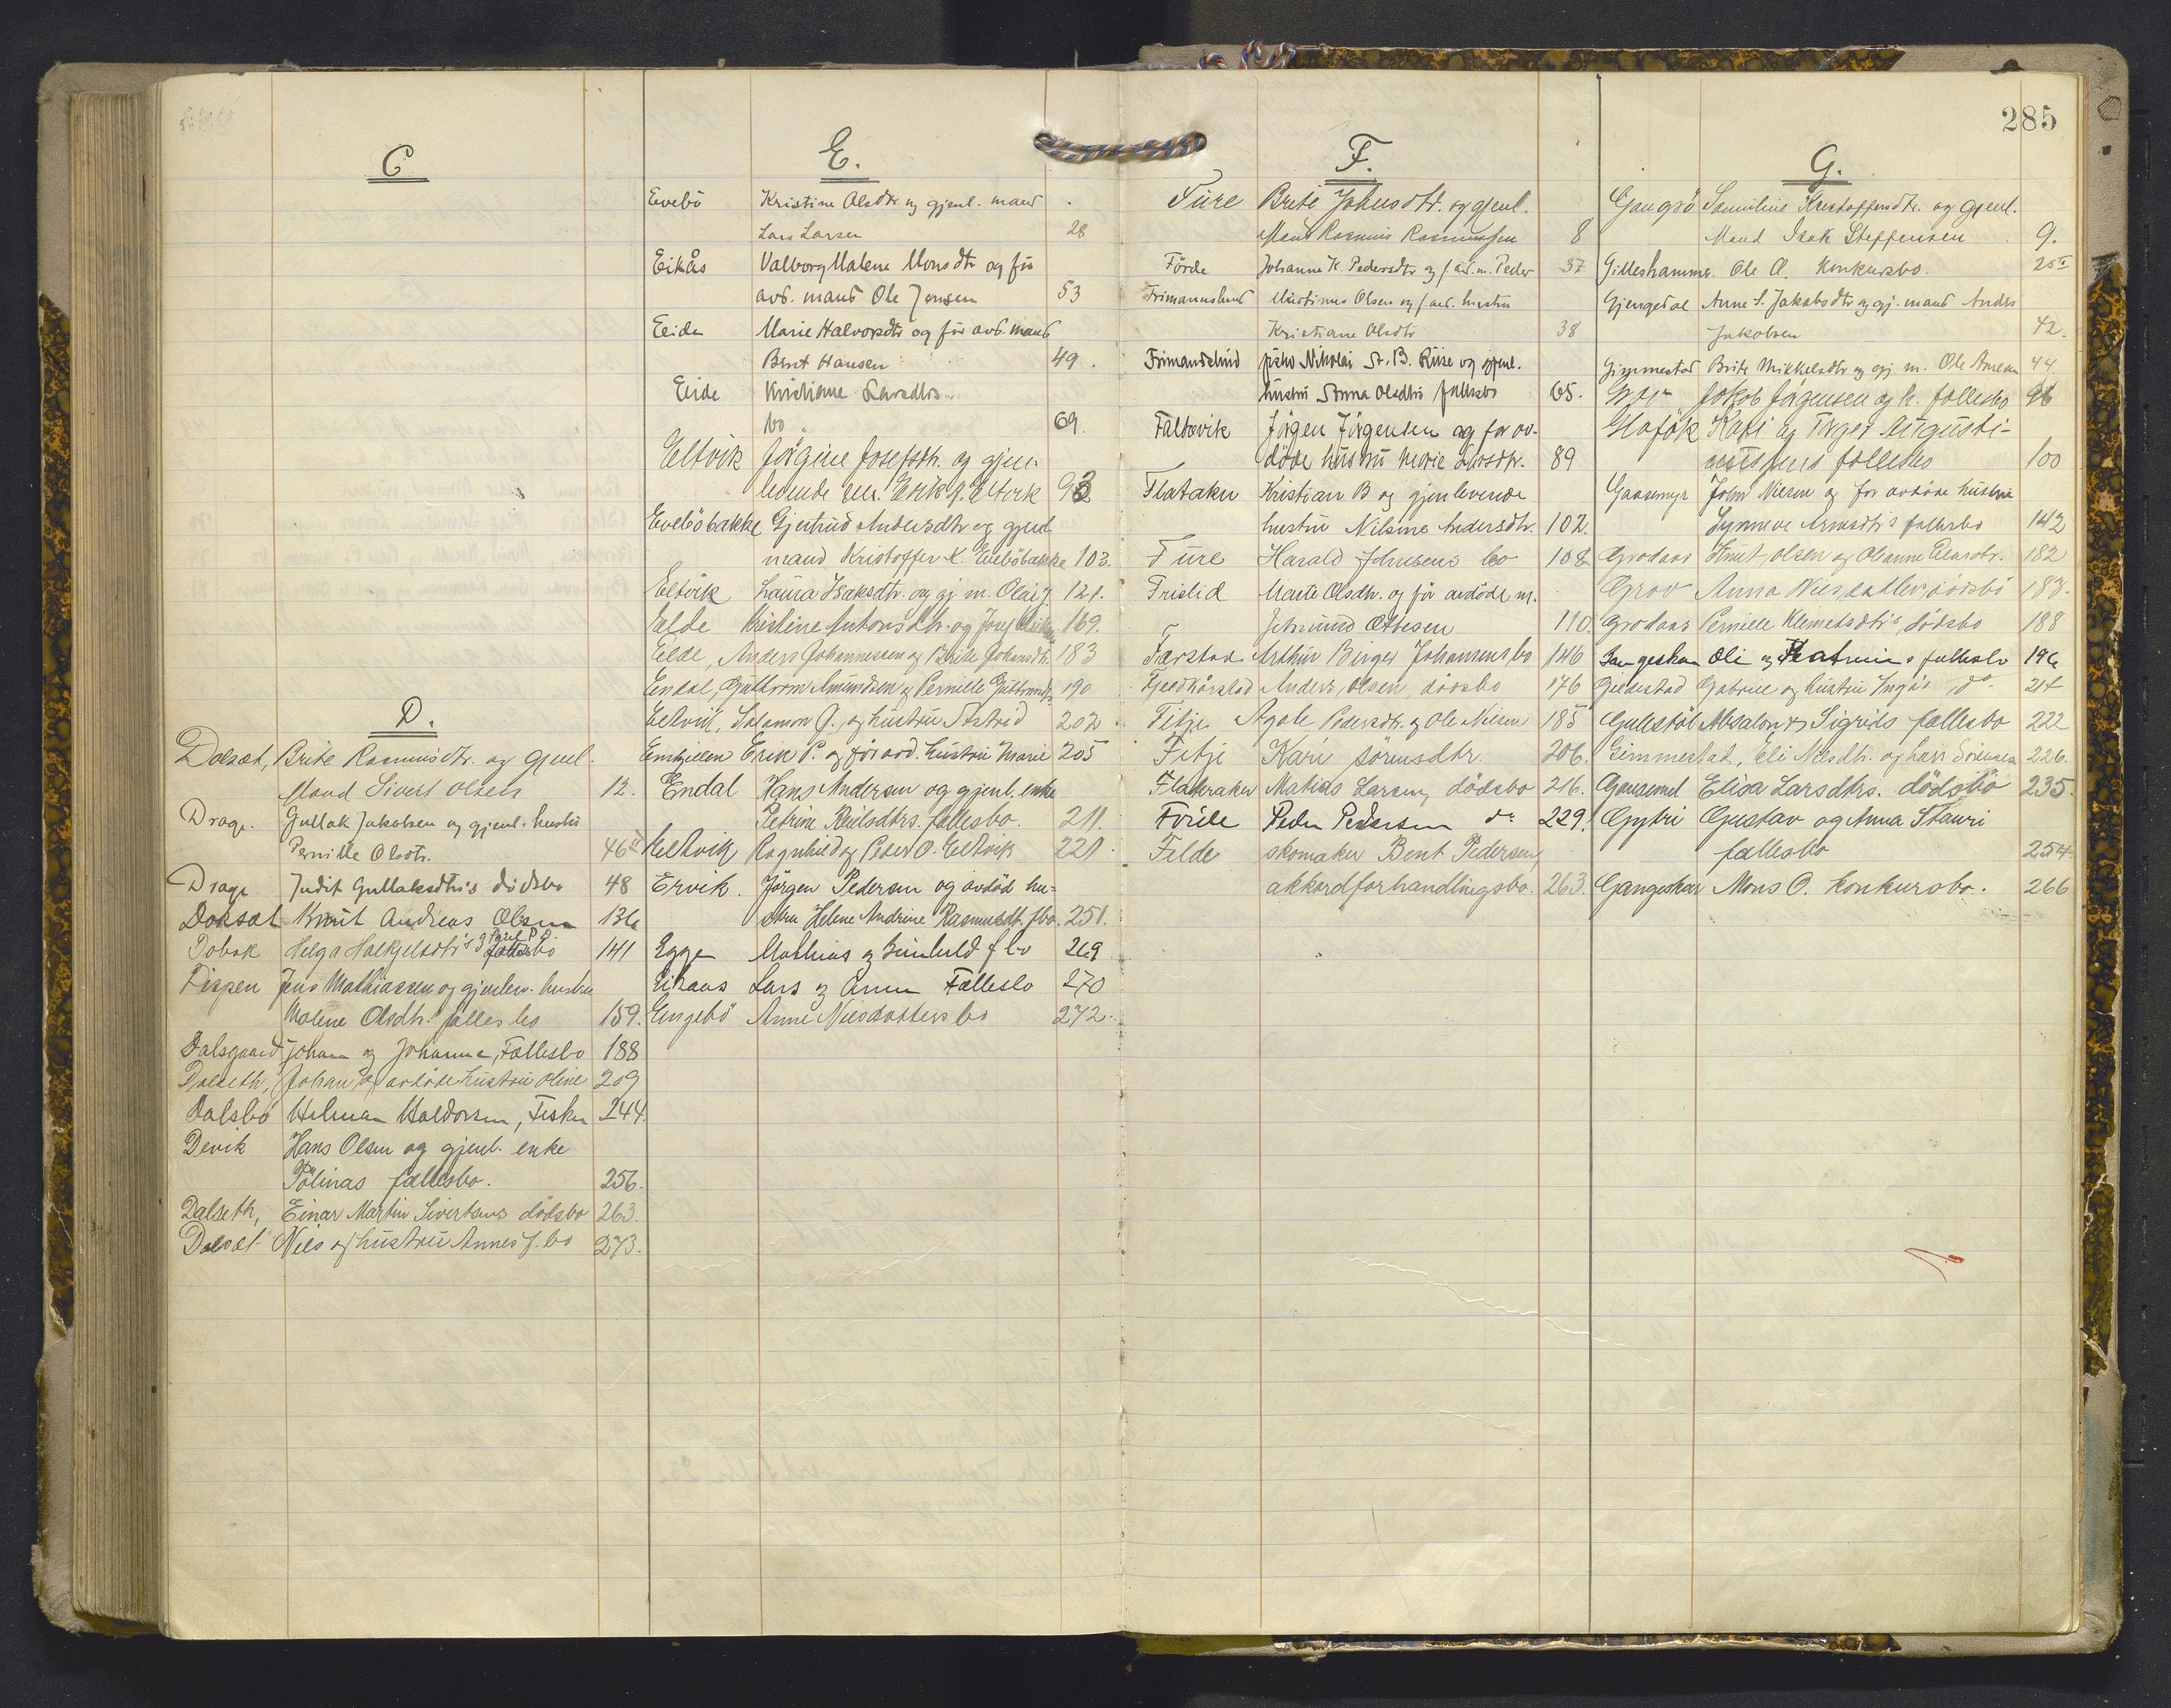 285
C
D.
Dalsæt, Brite Rasmusdtr. og gjenl.
Mand Sivert Olsen 12.
Drage. Gullak Jakobsen og gjenl. hustru
Pernille Olsdtr. 46
Drage Judit Gullaksdtr's dödsbo 48
Doksæt Knut Andreas Olsen 136
Helga 141
Jens Mathiassen og gjenlev. hustru
Malene Olsdtr. fælles bo 159.
Dalsgaard Johan og Johanne, Fællesbo 188
Dalseth, Johan og avdöde hustru Oline 209
Dalsbö Hilmar Haldorsen, Fisker 244.
Devik Hans Olsen og gjenl. enke
Pölinas fællesbo. 256.
Dalseth, Einar Martin Sivertsens dödsbo 263.
Dalsæt Nils og hustru Annes f. bo 273.
E.
Evebö Kristine Olsdtr og gjenl. mand
Lars Larsen 28
Eikås Valborg Malene Monsdtr og for
avd. mand Ole Jensen 53
Eide Marie Halvorsdtr og for avd. mand
Bent Hansen 49.
Eide Kristiane Larsdtrs
bo 69.
Eltvik Jörgine Josefsdtr. og gjen-
levende m. Erik J. Eltvik 93
Eveböbakke Gjertrud Andersdtr og gjenl.
mand Kristoffer K. Eveböbakke 103.
Eltvik Laura Isaksdtr. og gj. m. Olai J. 121.
Elde Kristine Antonsdtr. og Josef 169.
Elde, Anders Johannessen og Brite Johansdtr. 183
Endal, Guttorm Amundsen og Pernille Guttormsd. 190
Eltvik, Salamon J. og hustru Astrid 202
Erik P. og for avd. hustru Marie 205
Endal Hans Andersen og gjenl. enke
Petrine fællesbo. 211.
Eltvik Ragnhild og Peder O. Eltvik 221
Ervik. Jörgen Pedersen og avdöd hu-
stru Helene Andrine Rasmusdt. f.bo. 251.
Egge Mathias og Gunhild f bo 269
Eikaas Lars og Anna Fællesbo 270
Engebö Anne Nilsdatters bo 272.
F.
Fure Brite Johnsdtr. og gjenl.
Mand Rasmus Rasmussen 8
Förde Johanne K. Pedersdtr og f. avd. m. Peder 37
Frimannslund Martinus Olsen og f. avd. hustru
Kristiane Olsdtr 38
Frimandslund fisker Nikolai St. B. Riise og gjenl.
hustru Anna Olsdtrs fællesbo 65.
Faltevik Jörgen Jörgensen og for av-
döde hustru Marie Larsdtr. 89
Flataker Kristian B og gjenlevende
hustru Nilsine Andersdtr. 102.
Fure Harald Johnsens bo 108
Frislid Marte Olsdtr. og for avdöde m.
Othesen 110.
Færstad Arthur Berger Johansens bo 146
Anders Olsen dödsbo 176
Fitje Agate Pedersdtr. og Ole Nilsen 185
Fitje Kari Sörensdtr. 206.
Flateraker Matias Larsens dödsbo 216.
Förde Peder Pedersen do 229.
Felde skomaker Bent Pedersens
akkordforhandlingsbo. 263.
G.
Gangsö Samuline Kristoffersdtr. og gjenl.
Mand Isak Steffensen 9.
Gilleshammer. Ole A. Konkursbo. 25
Gjengedal Anne S. Jakobsdtr og gj. mand Anders
Jakobsen 42.
Gimmestad Brite Mikkelsdtr og gj. m. Ole 44
Jakob Jörgensen og h. fællesbo 96
Kari og Törger Augusti-
fællesbo 100
Gaasemyr John Nilsen og for avdöde hustru
Synneve fællesbo 142
Grodaas Knut Olsen og Olianne 182
Grov Anna Nilsdatters dödsbo 183.
Grodaas Pernille Klemetsdtr's dödsbo 188
Gangeskar Oli og Katrines fællesbo 196
Gjedestad Gabriel og hustru Ingas do 214
Gulestöl Absalon & Sigrids fællesbo 222
Gimmestad, Eli Nilsdtr. og Lars Sörensen 226.
Elisa Larsdtrs. dödsbo 235.
Gytri Gustav og Anna Stauri
fællesbo 254
Gangeskar Mons O. konkursbo. 266